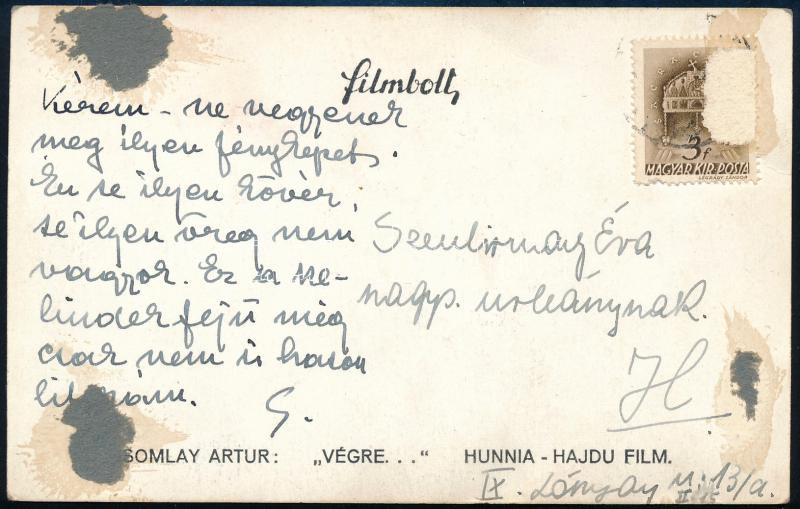 filmbolt
Kérem - ne vegyenek
meg ilyen fényképet.
Én se ilyen kövér,
se ilyen öreg nem
vagyok. Ez a
fejű még
csak nem is hason
lit rám.
S.
Éva
nagys. urleánynak.
IX. Lónyay u. 13/a.
SOMLAY ARTUR: „VÉGRE. . .“ HUNNIA - HAJDU FILM.
3f
MAGYAR KIR. POSTA
LÉGRÁDY SÁNDOR